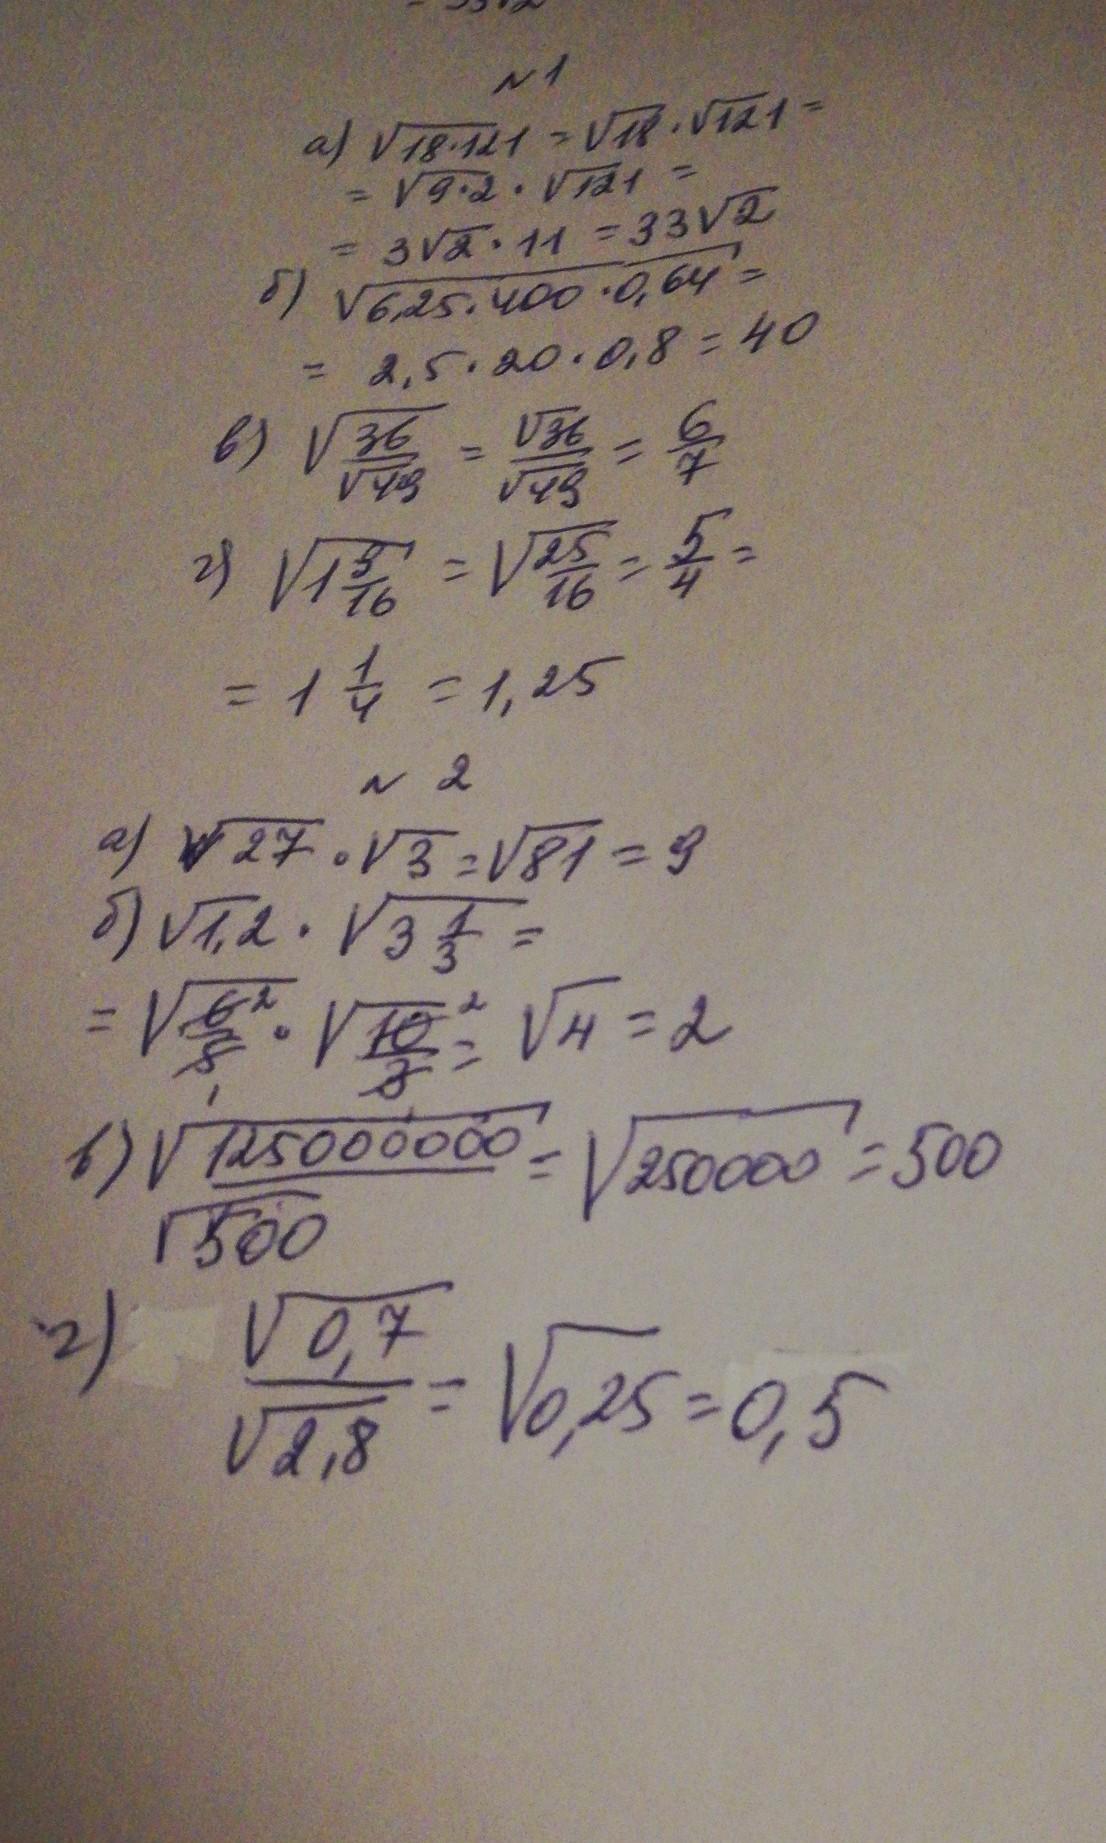 N 1
а) √(18·121) = √18 · √121 =
= √(9·2) · √121 =
= 3√2 · 11 = 33√2
б) √(6,25·400·0,64) =
= 2,5·20·0,8 = 40
в) √(36/√49) = √36/√49 = 6/7
г) √(1 9/16) = √(25/16) = 5/4 =
= 1 1/4 = 1,25
N 2
а) √27 · √3 = √81 = 9
б) √1,2 · √(3 1/3) =
= √(6/5) · √(10/3) = √4 = 2
в) √125000000/√500 = √250000 = 500
г) √0,7/√2,8 = √0,25 = 0,5